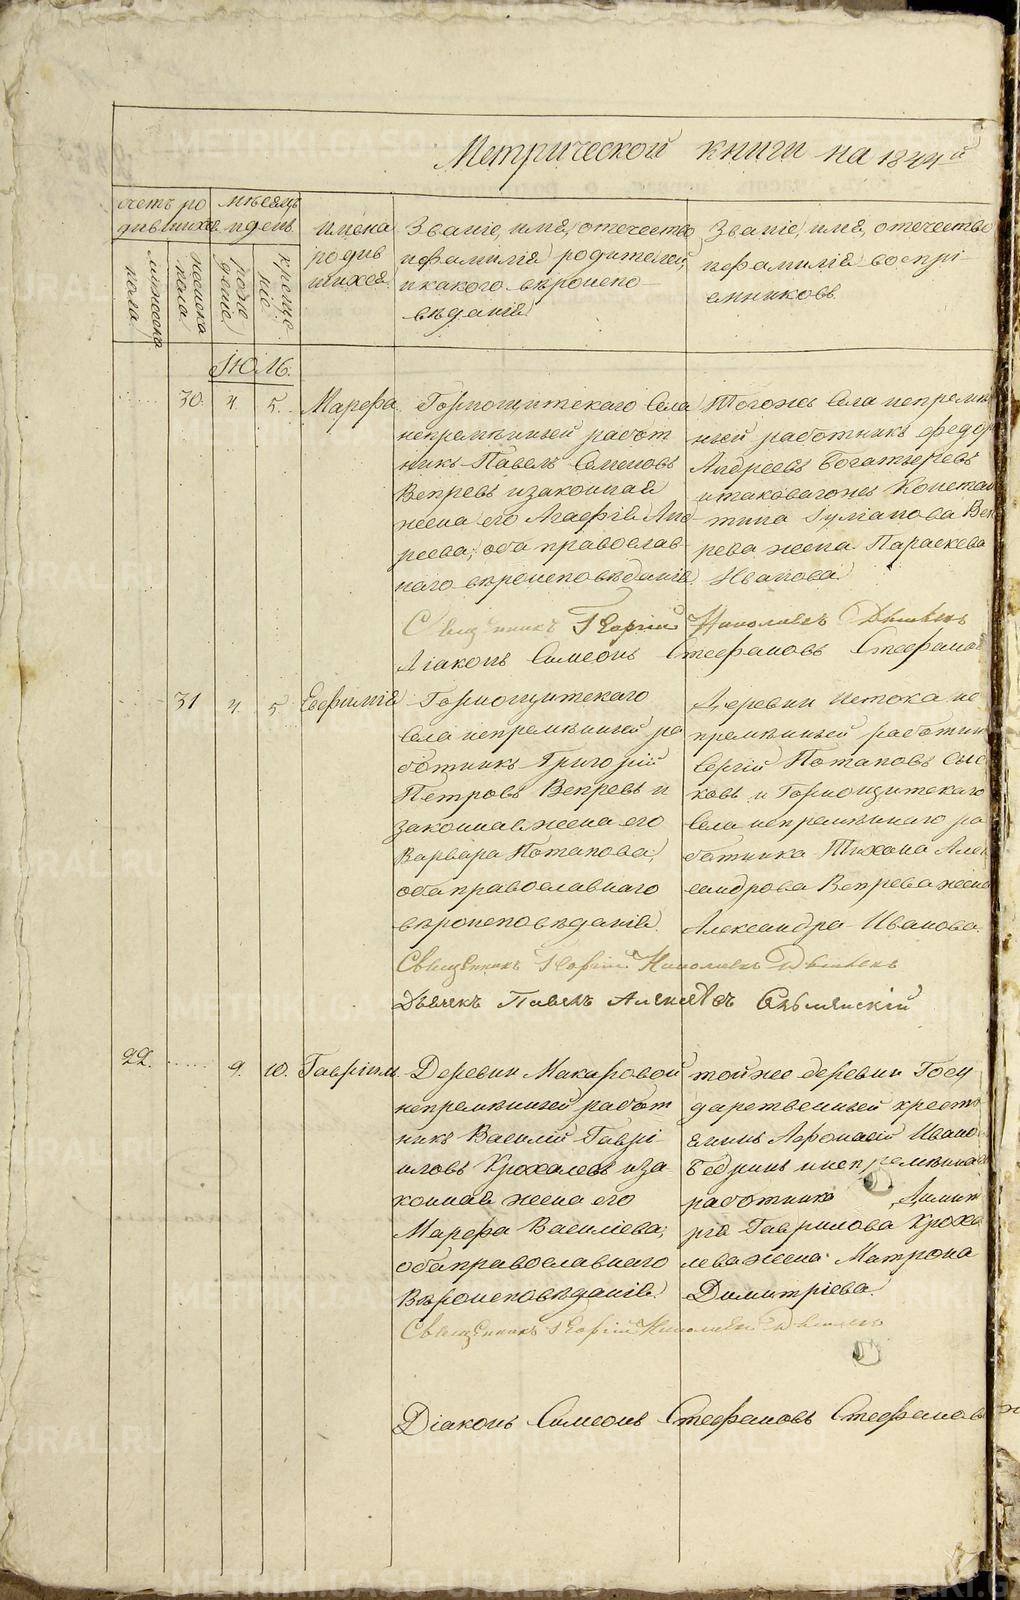 Метрической книги на 1844й
счетъ ро
дившихся
мѣсяцъ
и день
имена
родив
шихся
Званіе, имя, отечество
и фамилія родителей,
и какого вѣроиспо-
вѣданія
Званіе, имя, отечество
и фамилія воспрі-
емниковъ
мужеска
пола
женска
пола
рож
деніе
креще
ніе
Іюль.
30. 4. 5. Марефа
Горнощитскаго села
непремѣнный работ
никъ Павелъ Семеновъ
Вепревъ и законная
жена его Агафія Анд
реева; оба православ-
наго вѣроисповѣданія
Тогожъ села непремѣн
ный работникъ Федор
Андреевъ Богатыревъ
и таковагожъ Констан
тина
рева жена Параскева
Иванова
Священникъ Георгій Николаевъ
Діаконъ Симеонъ Стефановъ Стефанов
31 4. 5 Евфимія
Горнощитскаго
села непремѣнный ра
ботникъ Григорій
Петровъ Вепревъ и
законная жена его
Варвара Потапова,
оба православнаго
вѣроисповѣданія
Деревни Истока не
премѣнный работник
Сергій Потаповъ Сыс
ковъ и Горнощитскаго
села непремѣннаго ра
ботника Тихона Алек
сандрова Вепрева жена
Александра Иванова.
Священникъ Георгій Николаевъ
Дьячекъ Павелъ Алексѣевъ
22. 9. 10. Гавріилъ
Деревни Макаровой
непремѣнный работ
никъ Василій Гаврі
иловъ Крохалевъ и за
конная жена его
Марефа Василіева;
оба православнаго
Вѣроисповѣданія.
той же деревни Госу
дарственный кресть
янинъ Афонасій Ивано
Бедринъ и непремѣннаго
работника Димит
рія Гаврилова Кроха
лева жена Матрона
Димитріева.
Священникъ Георгій Николаевъ
Діаконъ Симеонъ Стефановъ Стефановъ